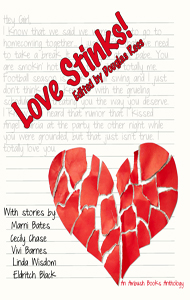 Hey Girl,
I know that we said we
homecoming together,
to take a break
You are smokin' hot
football season
just don't think
with the grueling
the way you deserve.
heard that rumor that I kissed
at the party the other night while
you were grounded, but that just isn't true. I
totally love you.
Love Stinks!
Edited by Douglas Rees
With stories by
Marni Bates
Cecily Chase
Viv Barnes
Linda Wisdom
Eldritch Black
An Ambush Books Anthology